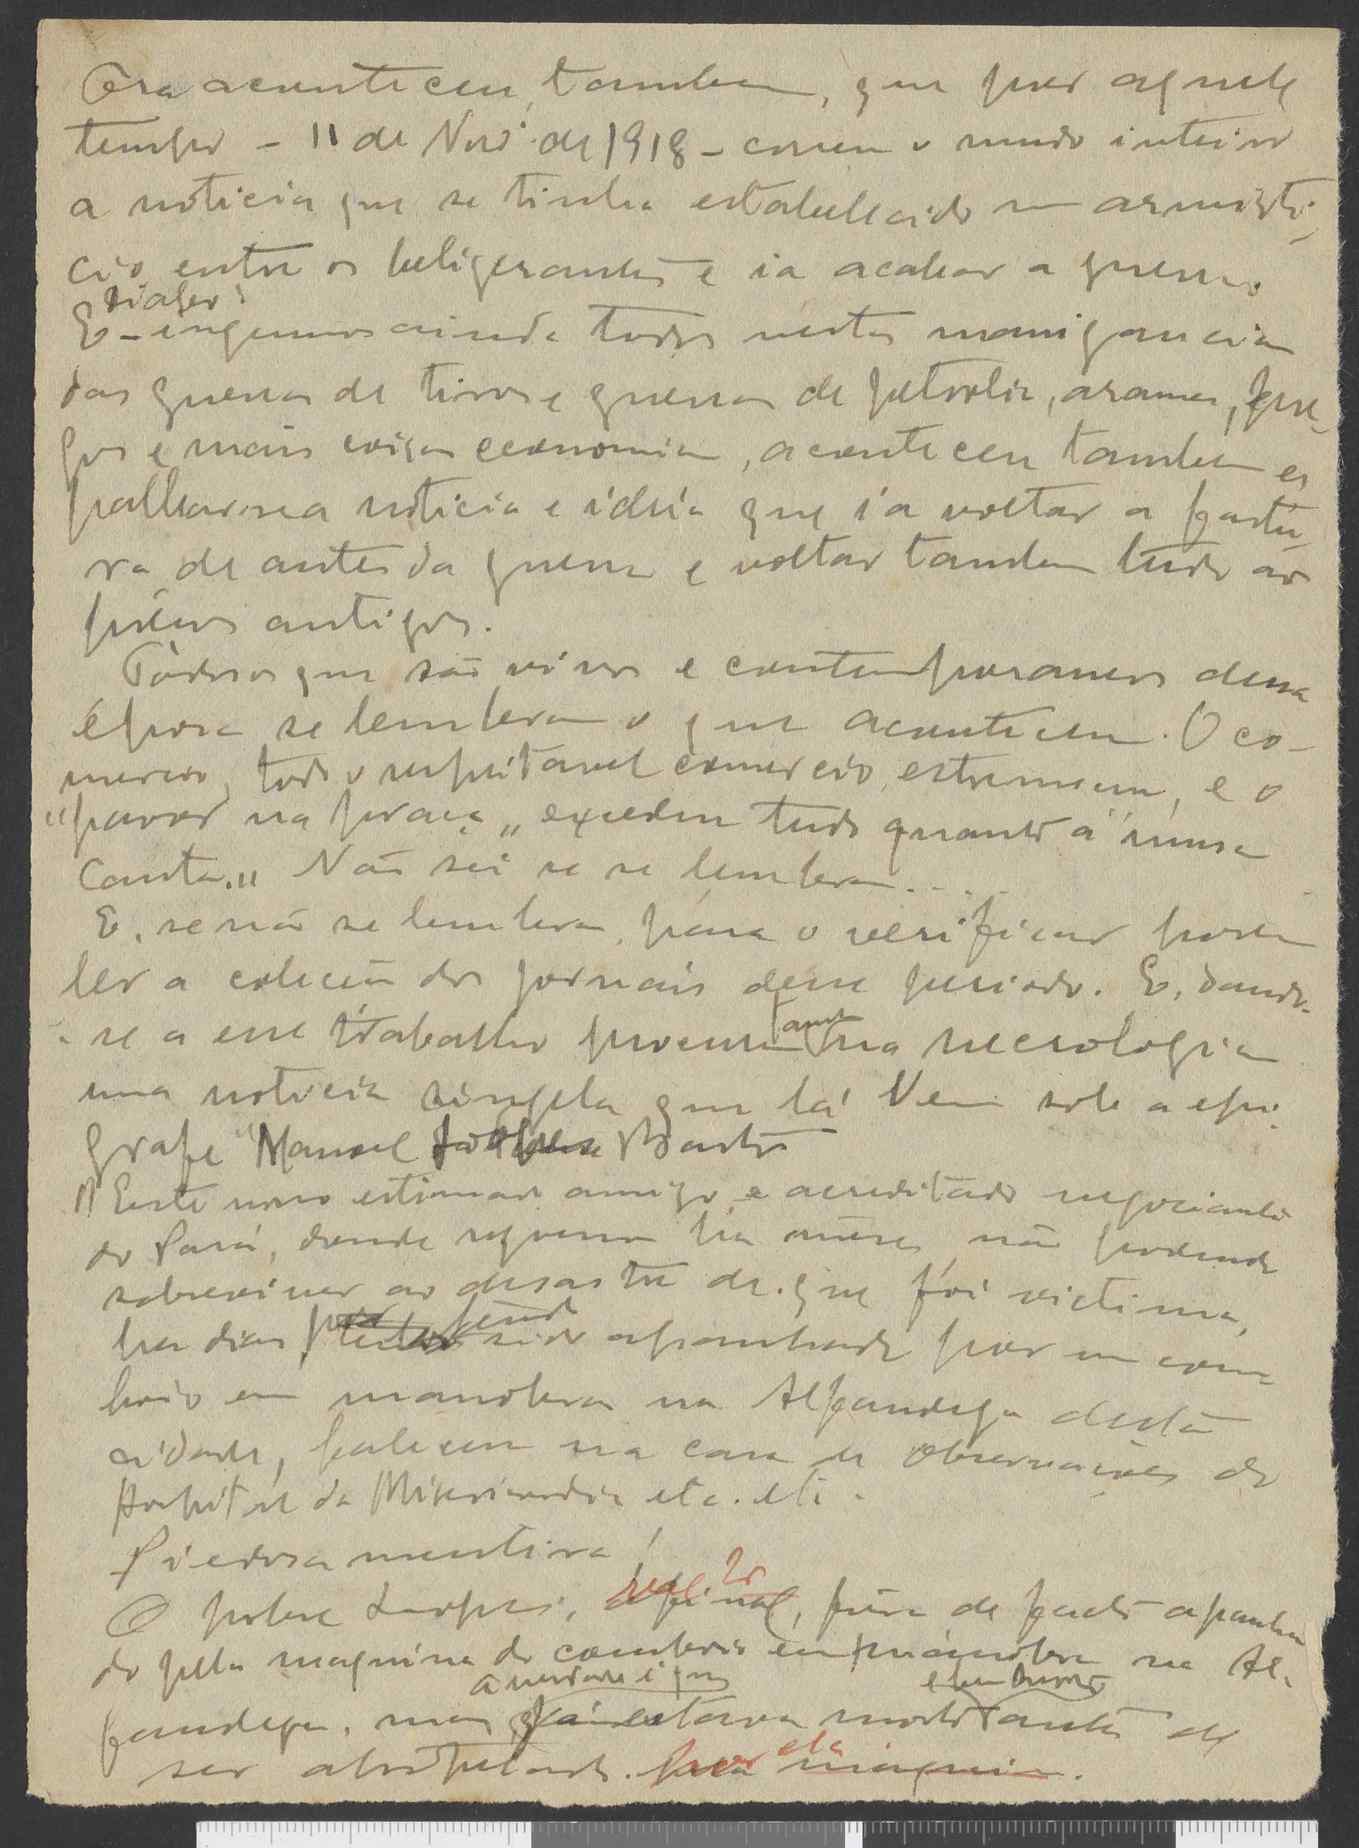 Ora aconteceu, tambem, que por aquele
tempo - 11 de Nov. de 1918 - correu o mundo inteiro
a noticia que se tinha estabelecido um armisti-
cio entre os beligerantes e ia acabar a guerra.
E - ingenuos ainda todos nestas manigancias
das guerras de tiros e guerras de petrolio, arames, pre-
gos e mais coisas economicas, aconteceu tambem es
palhar-se a noticia e idéia que ia voltar a fartu-
ra de antes da guerra e voltar tambem tudo aos
preços antigos.
Todos os que são vivos e contemporaneos dessa
época se lembram o que aconteceu. O co-
mercio, todo o respeitavel comercio, estremeceu, e o
"pavor na praça„ excedeu tudo quanto a "musa
canta.„ Não sei se se lembram....
E, se não se lembram, para o verificar podem
ler a coleção dos jornais desse periodo. E, dando-
-se a esse trabalho procurem na necrologia
uma noticia singela que lá vem sob a epi-
grafe "Manuel Bastos
"Este nosso estimado amigo e acreditado negociante
do Pará, donde regressou ha mêses, não podendo
sobreviver ao desastre de que foi victima,
ha dias, sido apanhado por um com-
boio em manobras na Alfandega desta
cidade, faleceu na casa de observações do
Hospital da Misericordia etc. etc.
Piedosa mentira!
O pobre Lopes, fôra de facto apanha
do pela maquina do comboio em manobra na Al-
a verdade é que
fandega, mas já estava morto antes de
ser atropelado por ela.